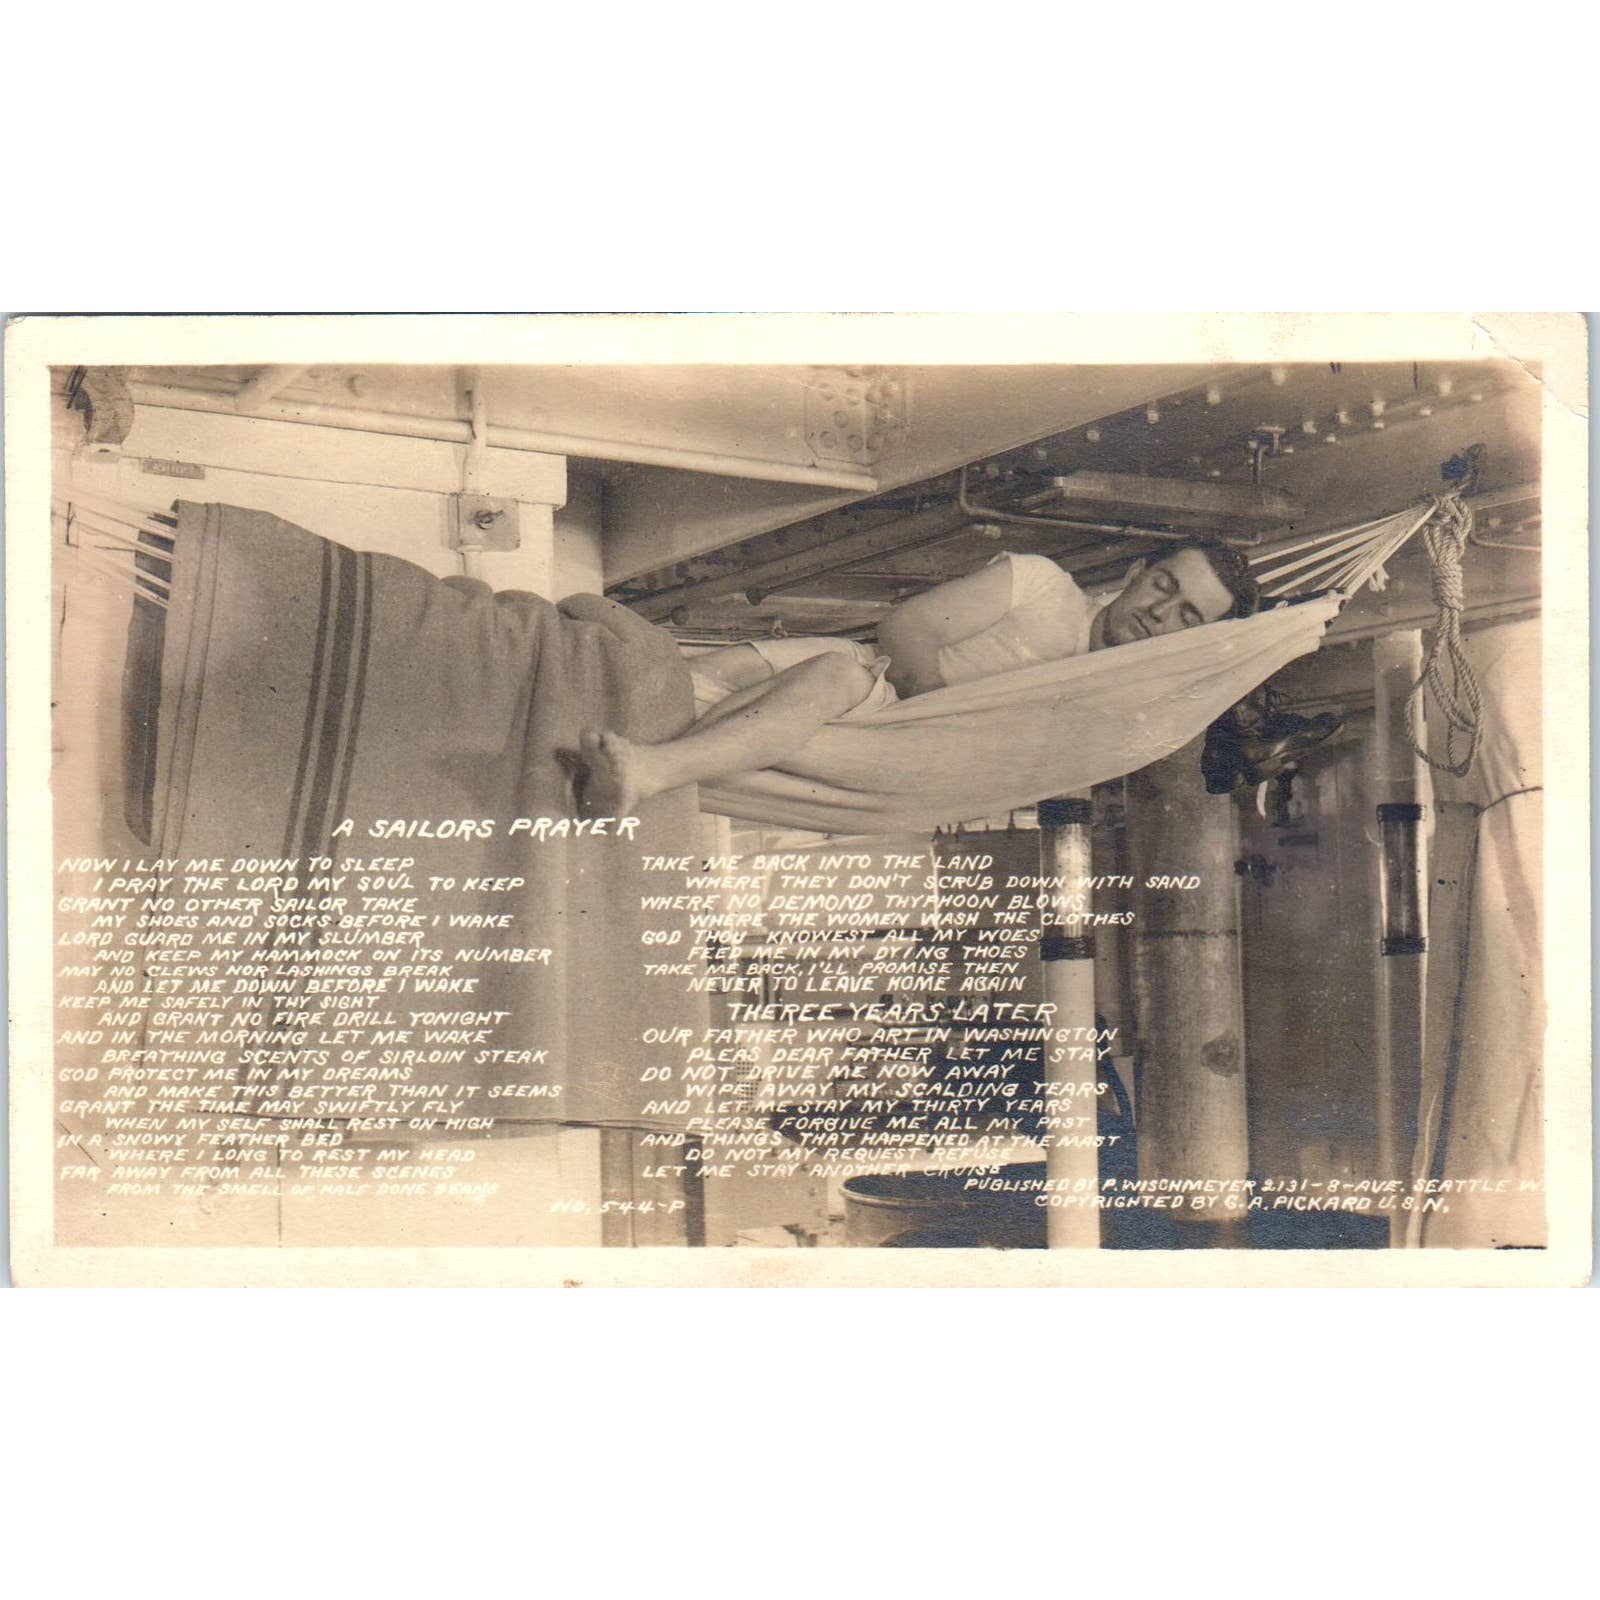 A SAILORS PRAYER
NOW I LAY ME DOWN TO SLEEP
I PRAY THE LORD MY SOUL TO KEEP
GRANT NO OTHER SAILOR TAKE
MY SHOES AND SOCKS BEFORE I WAKE
LORD GUARD ME IN MY SLUMBER
AND KEEP MY HAMMOCK ON ITS NUMBER
MAY NO CLEWS NOR LASHINGS BREAK
AND LET ME DOWN BEFORE I WAKE
KEEP ME SAFELY IN THY SIGHT
AND GRANT NO FIRE DRILL TONIGHT
AND IN THE MORNING LET ME WAKE
BREATHING SCENTS OF SIRLOIN STEAK
GOD PROTECT ME IN MY DREAMS
AND MAKE THIS BETTER THAN IT SEEMS
GRANT THE TIME MAY SWIFTLY FLY
WHEN MY SELF SHALL REST ON HIGH
IN A SNOWY FEATHER BED
WHERE I LONG TO REST MY HEAD
FAR AWAY FROM ALL THESE SCENES
FROM THE SMELL OF HALF DONE BEANS
TAKE ME BACK INTO THE LAND
WHERE THEY DON'T SCRUB DOWN WITH SAND
WHERE NO DEMOND THYPHOON BLOWS
WHERE THE WOMEN WASH THE CLOTHES
GOD THOU KNOWEST ALL MY WOES
FEED ME IN MY DYING THOES
TAKE ME BACK, I'LL PROMISE THEN
NEVER TO LEAVE HOME AGAIN
THEREE YEARS LATER
OUR FATHER WHO ART IN WASHINGTON
PLEAS DEAR FATHER LET ME STAY
DO NOT DRIVE ME NOW AWAY
WIPE AWAY MY SCALDING TEARS
AND LET ME STAY MY THIRTY YEARS
PLEASE FORGIVE ME ALL MY PAST
AND THINGS THAT HAPPENED AT THE MAST
DO NOT MY REQUEST REFUSE
LET ME STAY ANOTHER CRUISE
PUBLISHED BY P. WISCHMEYER 2131-8-AVE. SEATTLE W.
COPYRIGHTED BY G. A. PICKARD U.S.N.
NO. 544-P